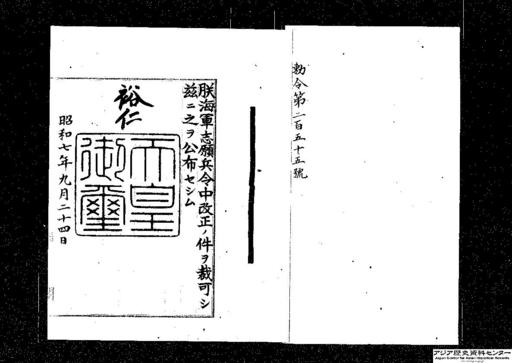 勅令第二百五十五號
朕海軍志願兵令中改正ノ件ヲ裁可シ
茲ニ之ヲ公布セシム
裕仁
天皇
御璽
昭和七年九月二十四日
アジア歴史資料センター
Japan Center for Asian Historical Records